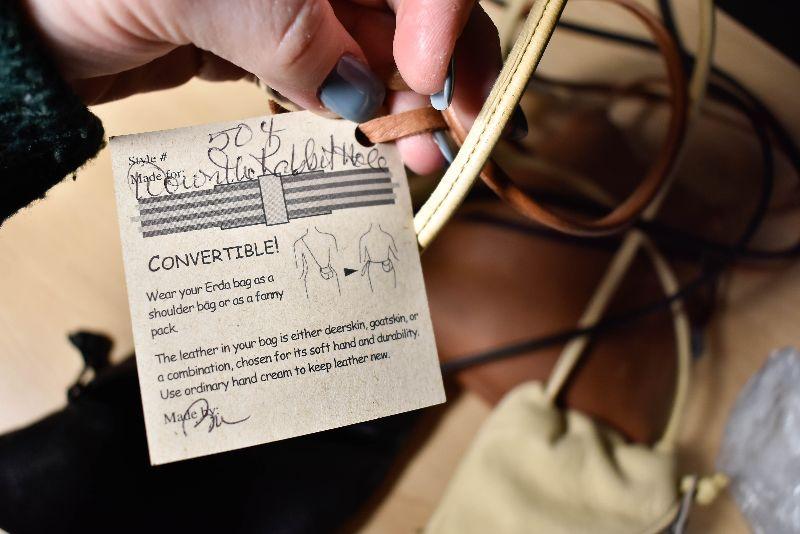 Style # 504
Made for: Down the Rabbit Hole
CONVERTIBLE!
Wear your Erda bag as a
shoulder bag or as a fanny
pack.
The leather in your bag is either deerskin, goatskin, or
a combination, chosen for its soft hand and durability.
Use ordinary hand cream to keep leather new.
Made by: